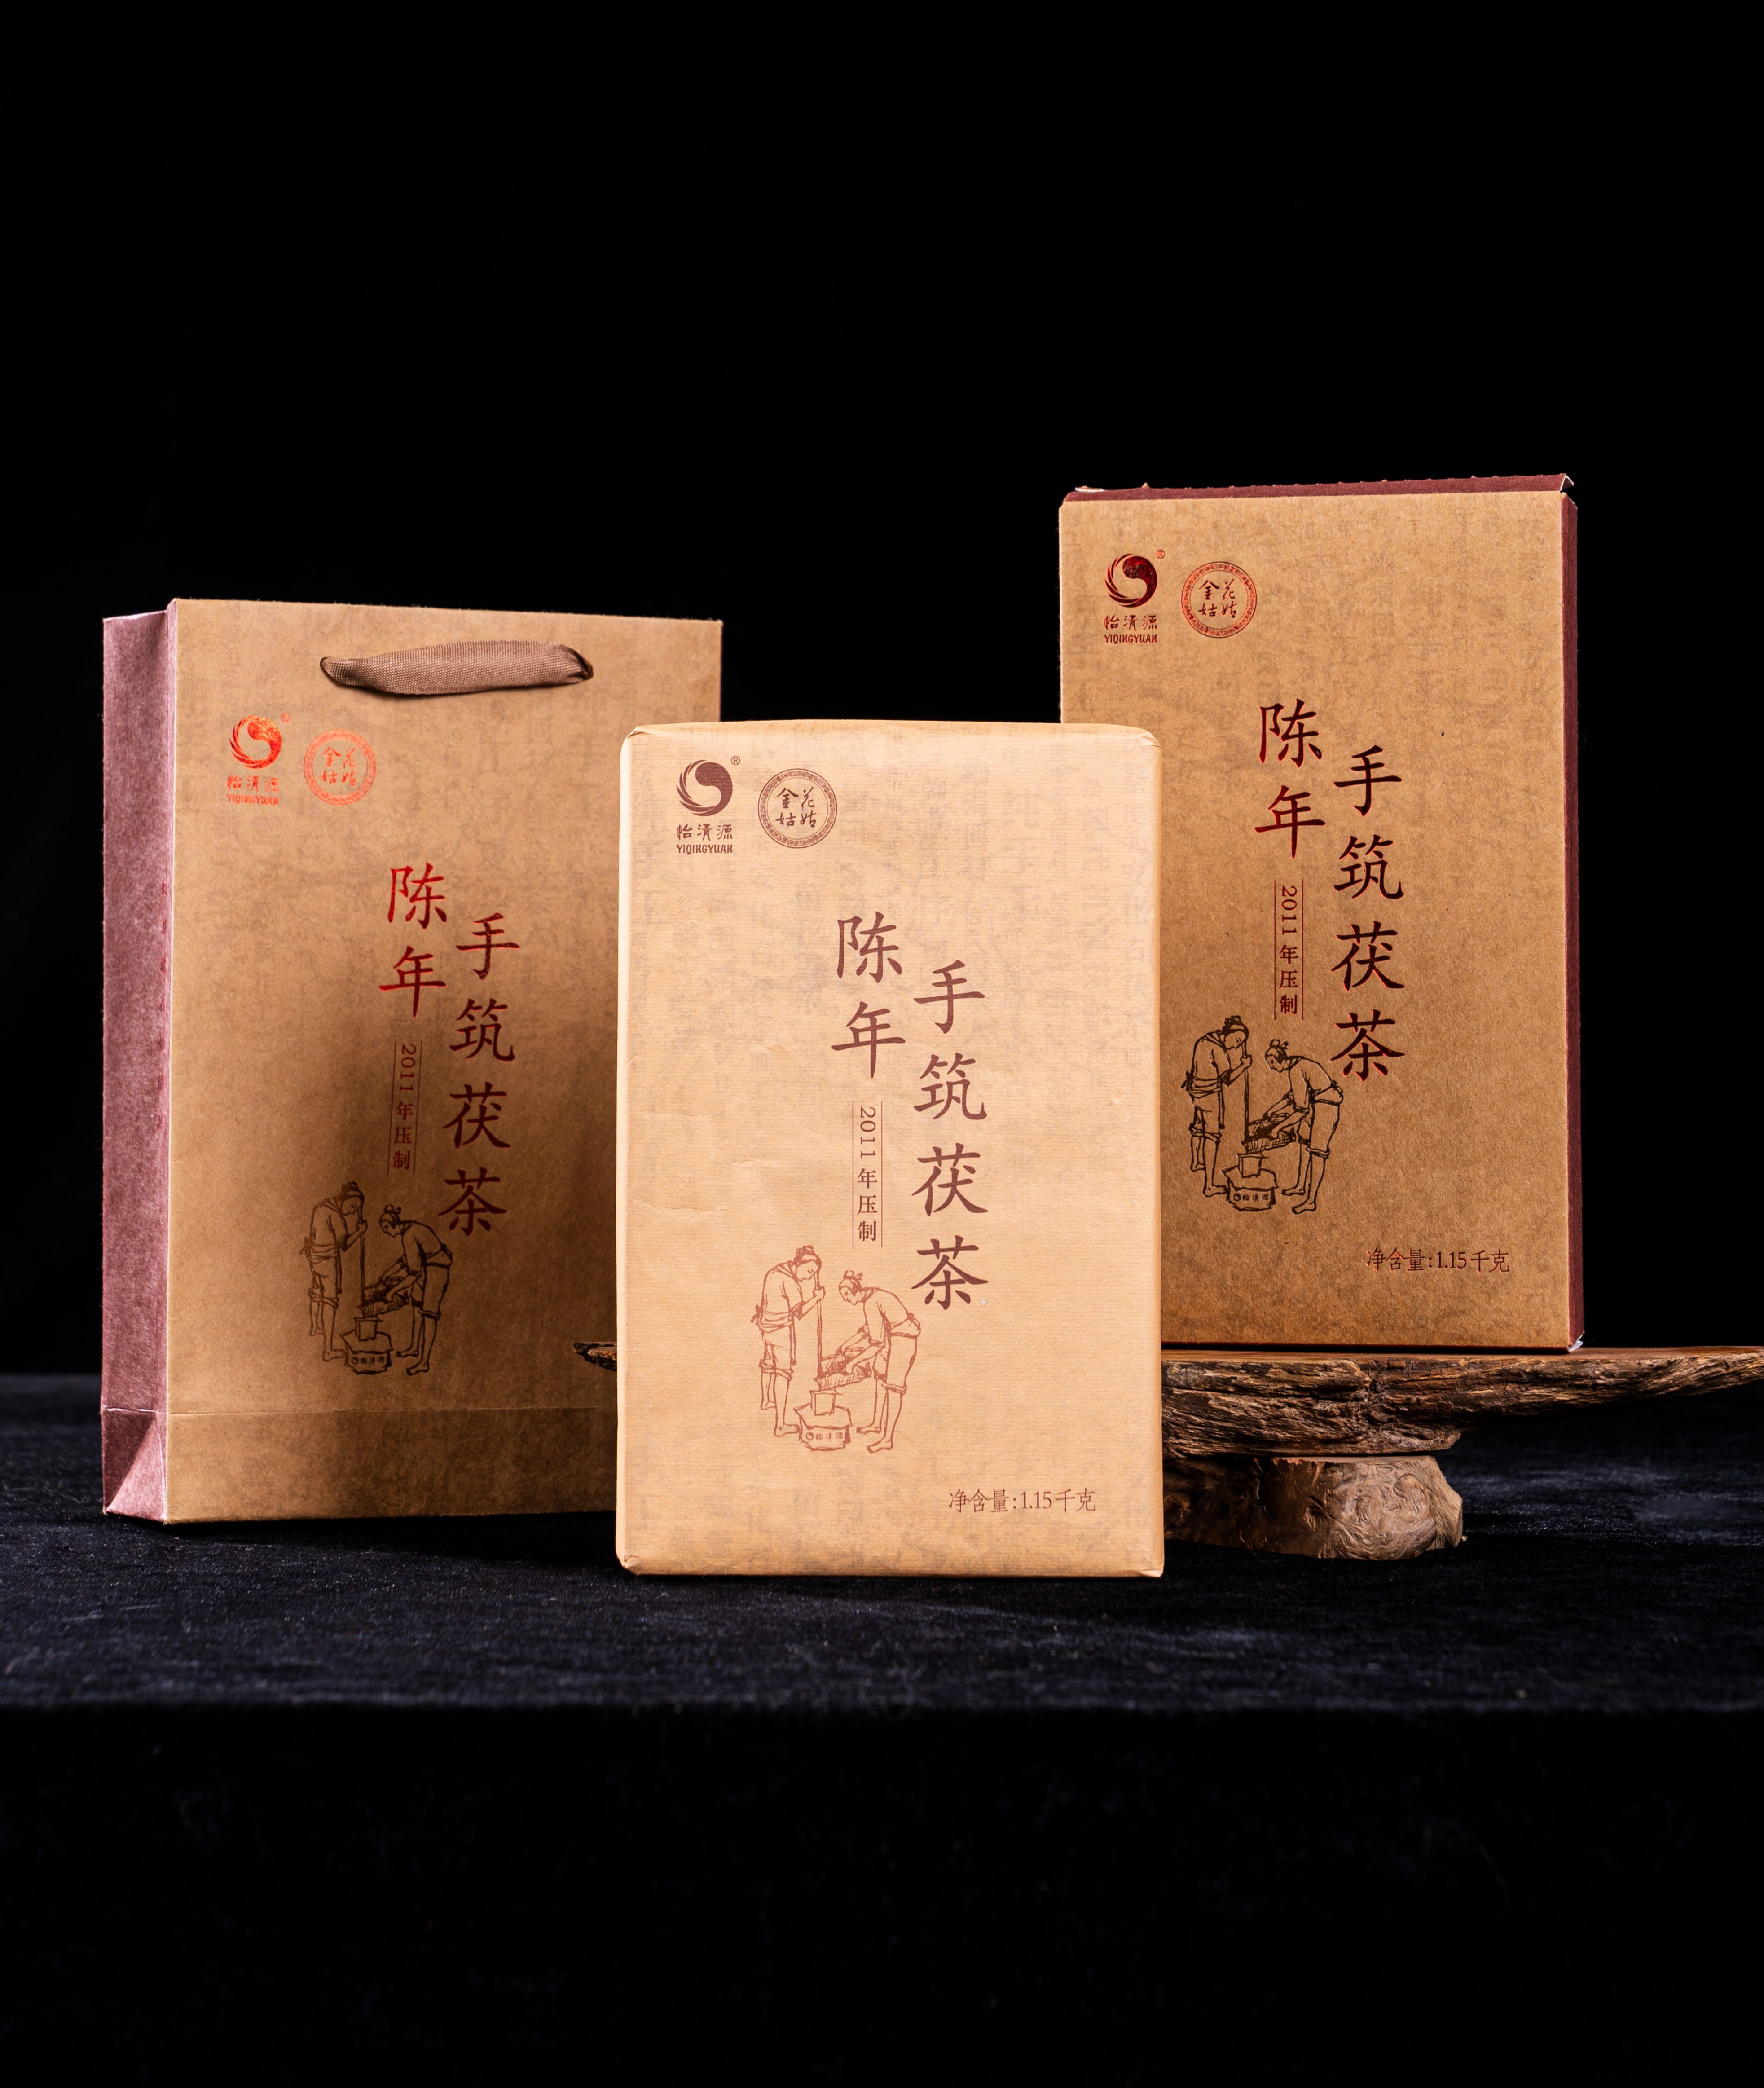 怡清源
YIQINGYUAN
®
金花
姑姑
陈年
手筑茯茶
2011年压制
怡清源
怡清源
YIQINGYUAN
®
金花
姑姑
陈年
手筑茯茶
2011年压制
怡清源
净含量:1.15千克
怡清源
YIQINGYUAN
®
金花
姑姑
陈年
手筑茯茶
2011年压制
怡清源
净含量:1.15千克